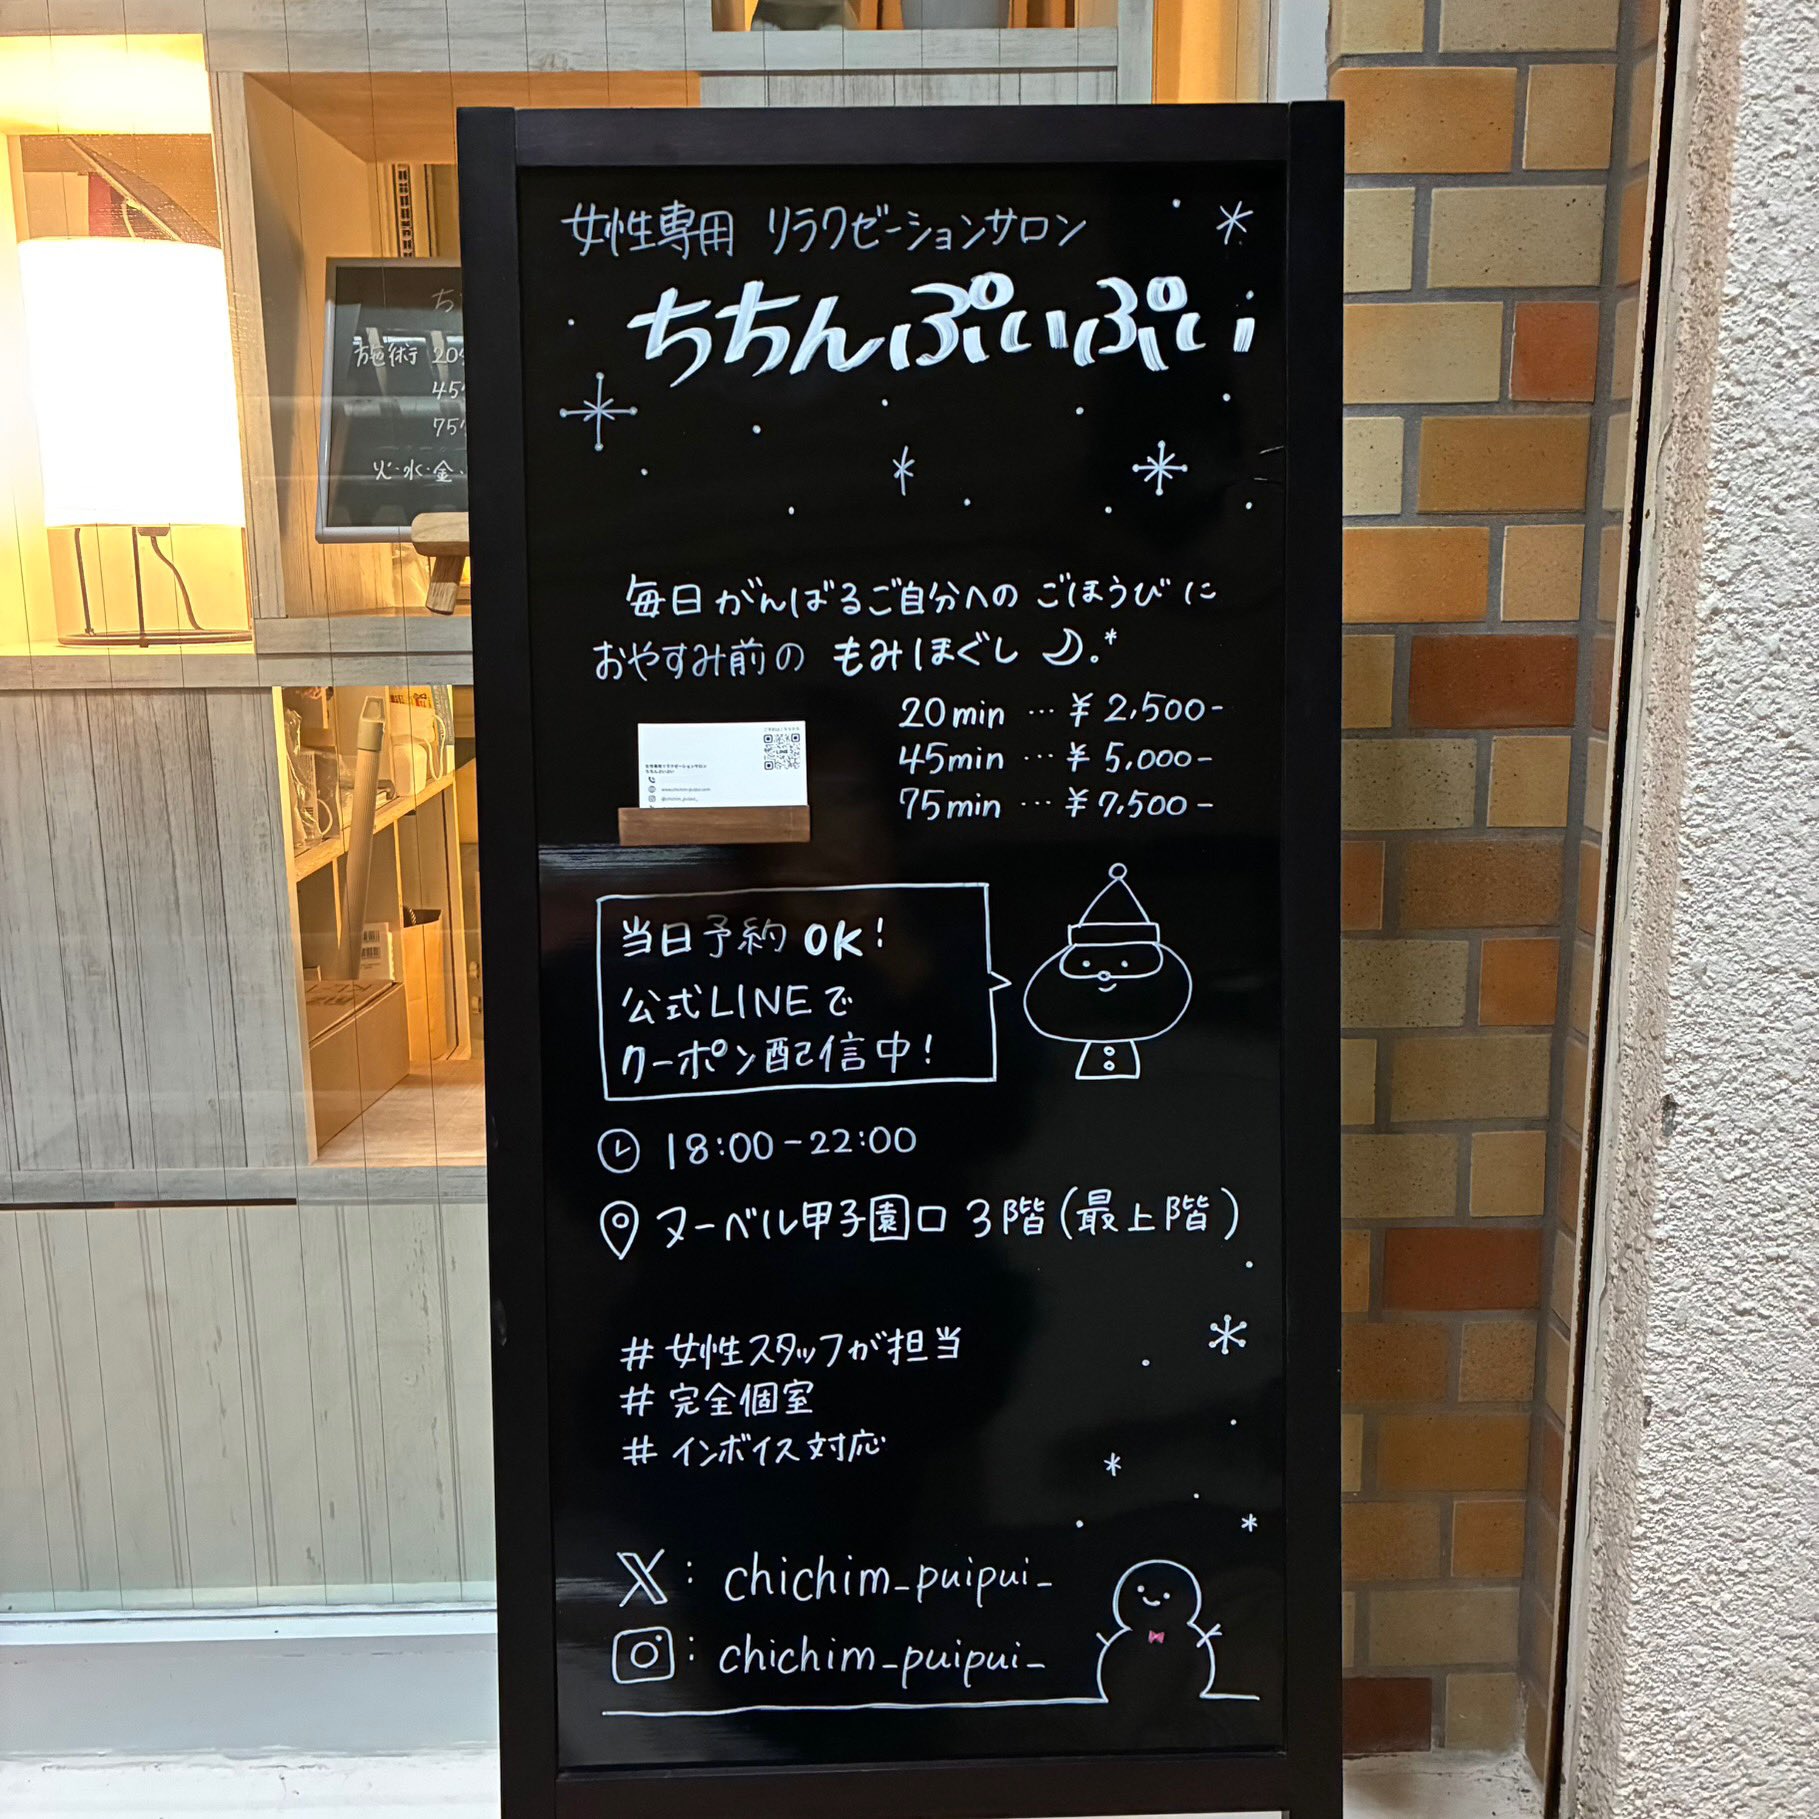 女性専用 リラクゼーションサロン
ちちんぷいぷい
毎日がんばるご自分への ごほうびに
おやすみ前の もみほぐし
20min … ¥ 2,500-
45min … ¥ 5,000-
75min … ¥ 7,500-
女性専用リラクゼーションサロン
ちちんぷいぷい
当日予約 OK!
公式LINEで
クーポン配信中!
18:00-22:00
ヌーベル甲子園口 3階(最上階)
# 女性スタッフが担当
# 完全個室
# インボイス対応
X: chichim_puipui_
: chichim_puipui_
施術 20
45
75
火・水・金・